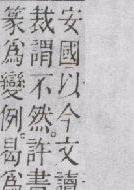 安國以今文讀
裁謂不然。許書
篆爲變例。曷爲